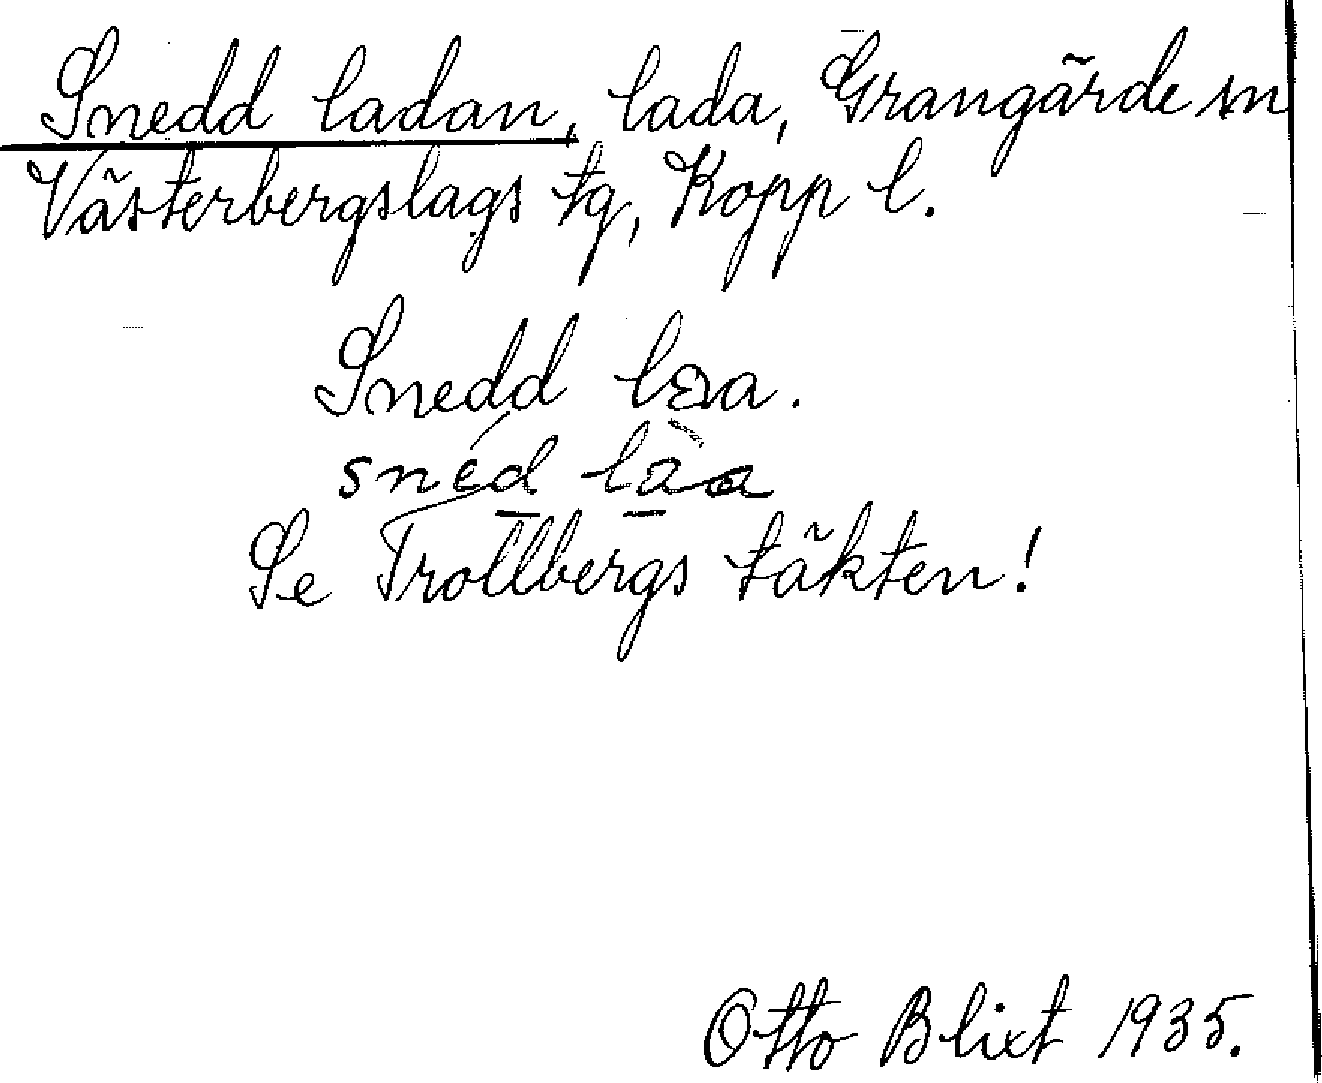 Snedd ladan, lada, Grangärde sn
Västerbergslags tg, Kopp l.
Snedd
Se Trollbergs täkten!
Otto Blixt 1935.